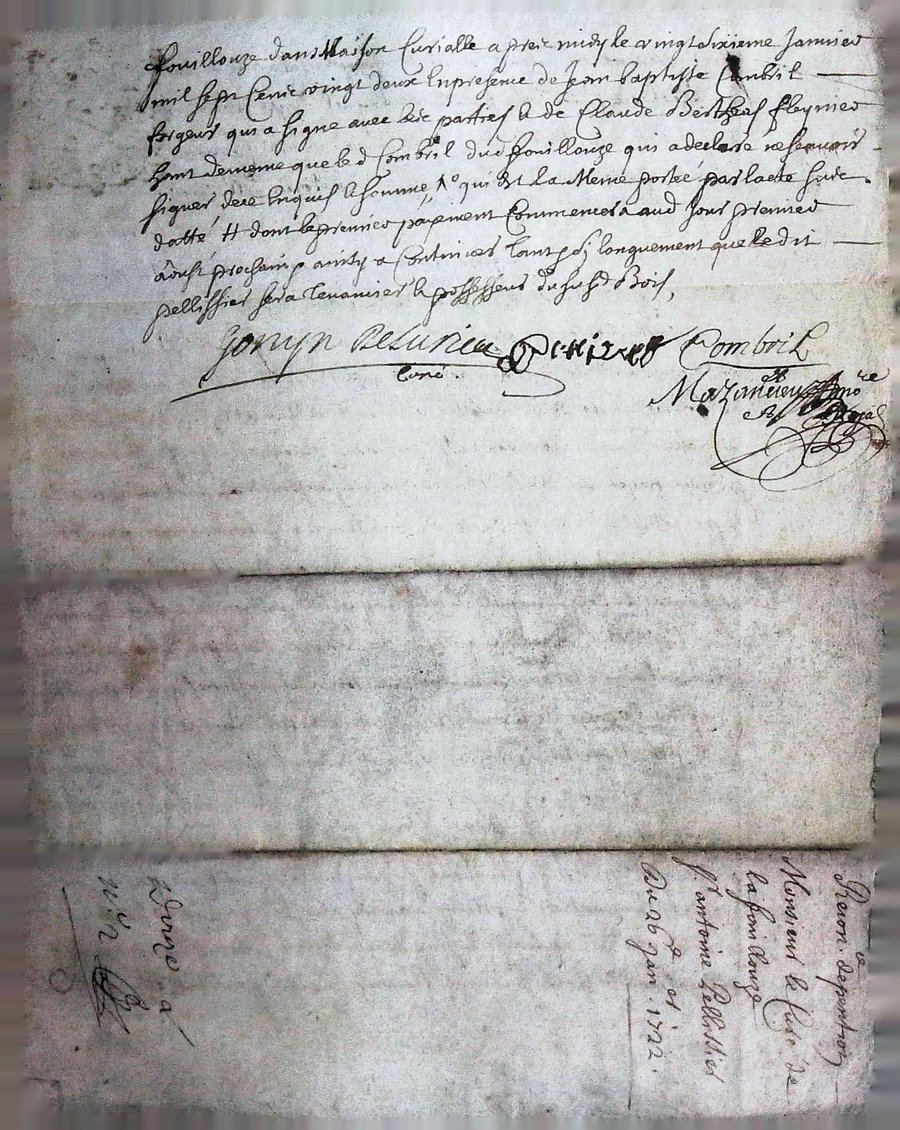 fouillouze dans Maison Curialle apres midy le vingt sixieme Janvier
mil sept cens vingt deux En presence de Jean baptiste Combril
forgeur qui a signe avec les parties & de Claude Bertheas
dud fouillouze qui a declare ne scavoir
signer de ce Enquis & somme, qui est la Meme portée par lacte susd
datté H dont le premier payement Commencera aud Jour premier
aoust prochain, ainsy a Continuer tant & si longuement que ledit
pellissier sera tenancier & possesseur du susd Bois,
Combril
curé
Mazancieu
royal
Revon de pention
a
Monsieur le Curé de
la fouillouze
Sr antoine Pellissier
Du 26e Jan. 1722.